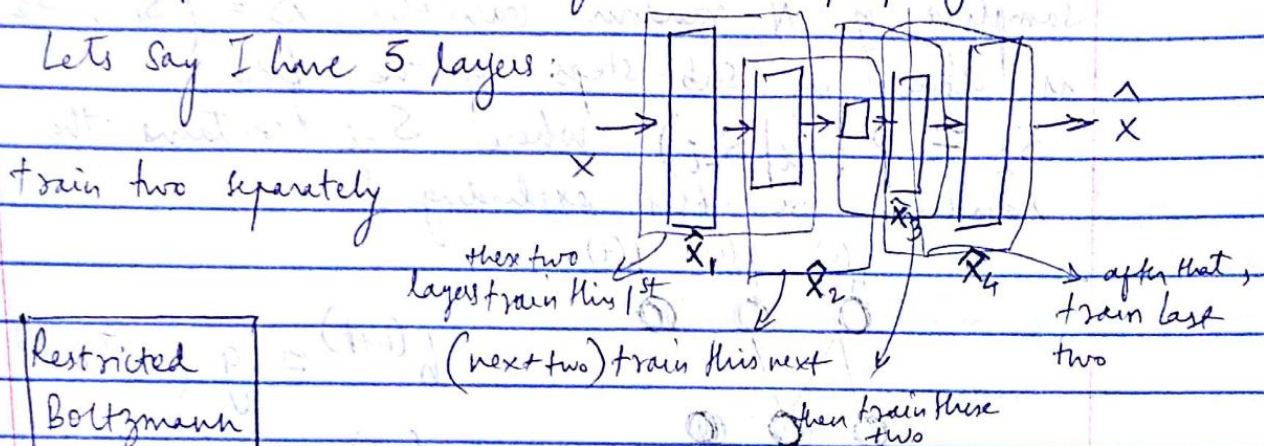 Lets Say I have 5 layers:
X
X̂
train two separately
X̂₁
X̂₂
X̂₃
X̂₄
these two
layers train this 1st
(next two) train this next
then train these
two
after that,
train last
two
Restricted
Boltzmann